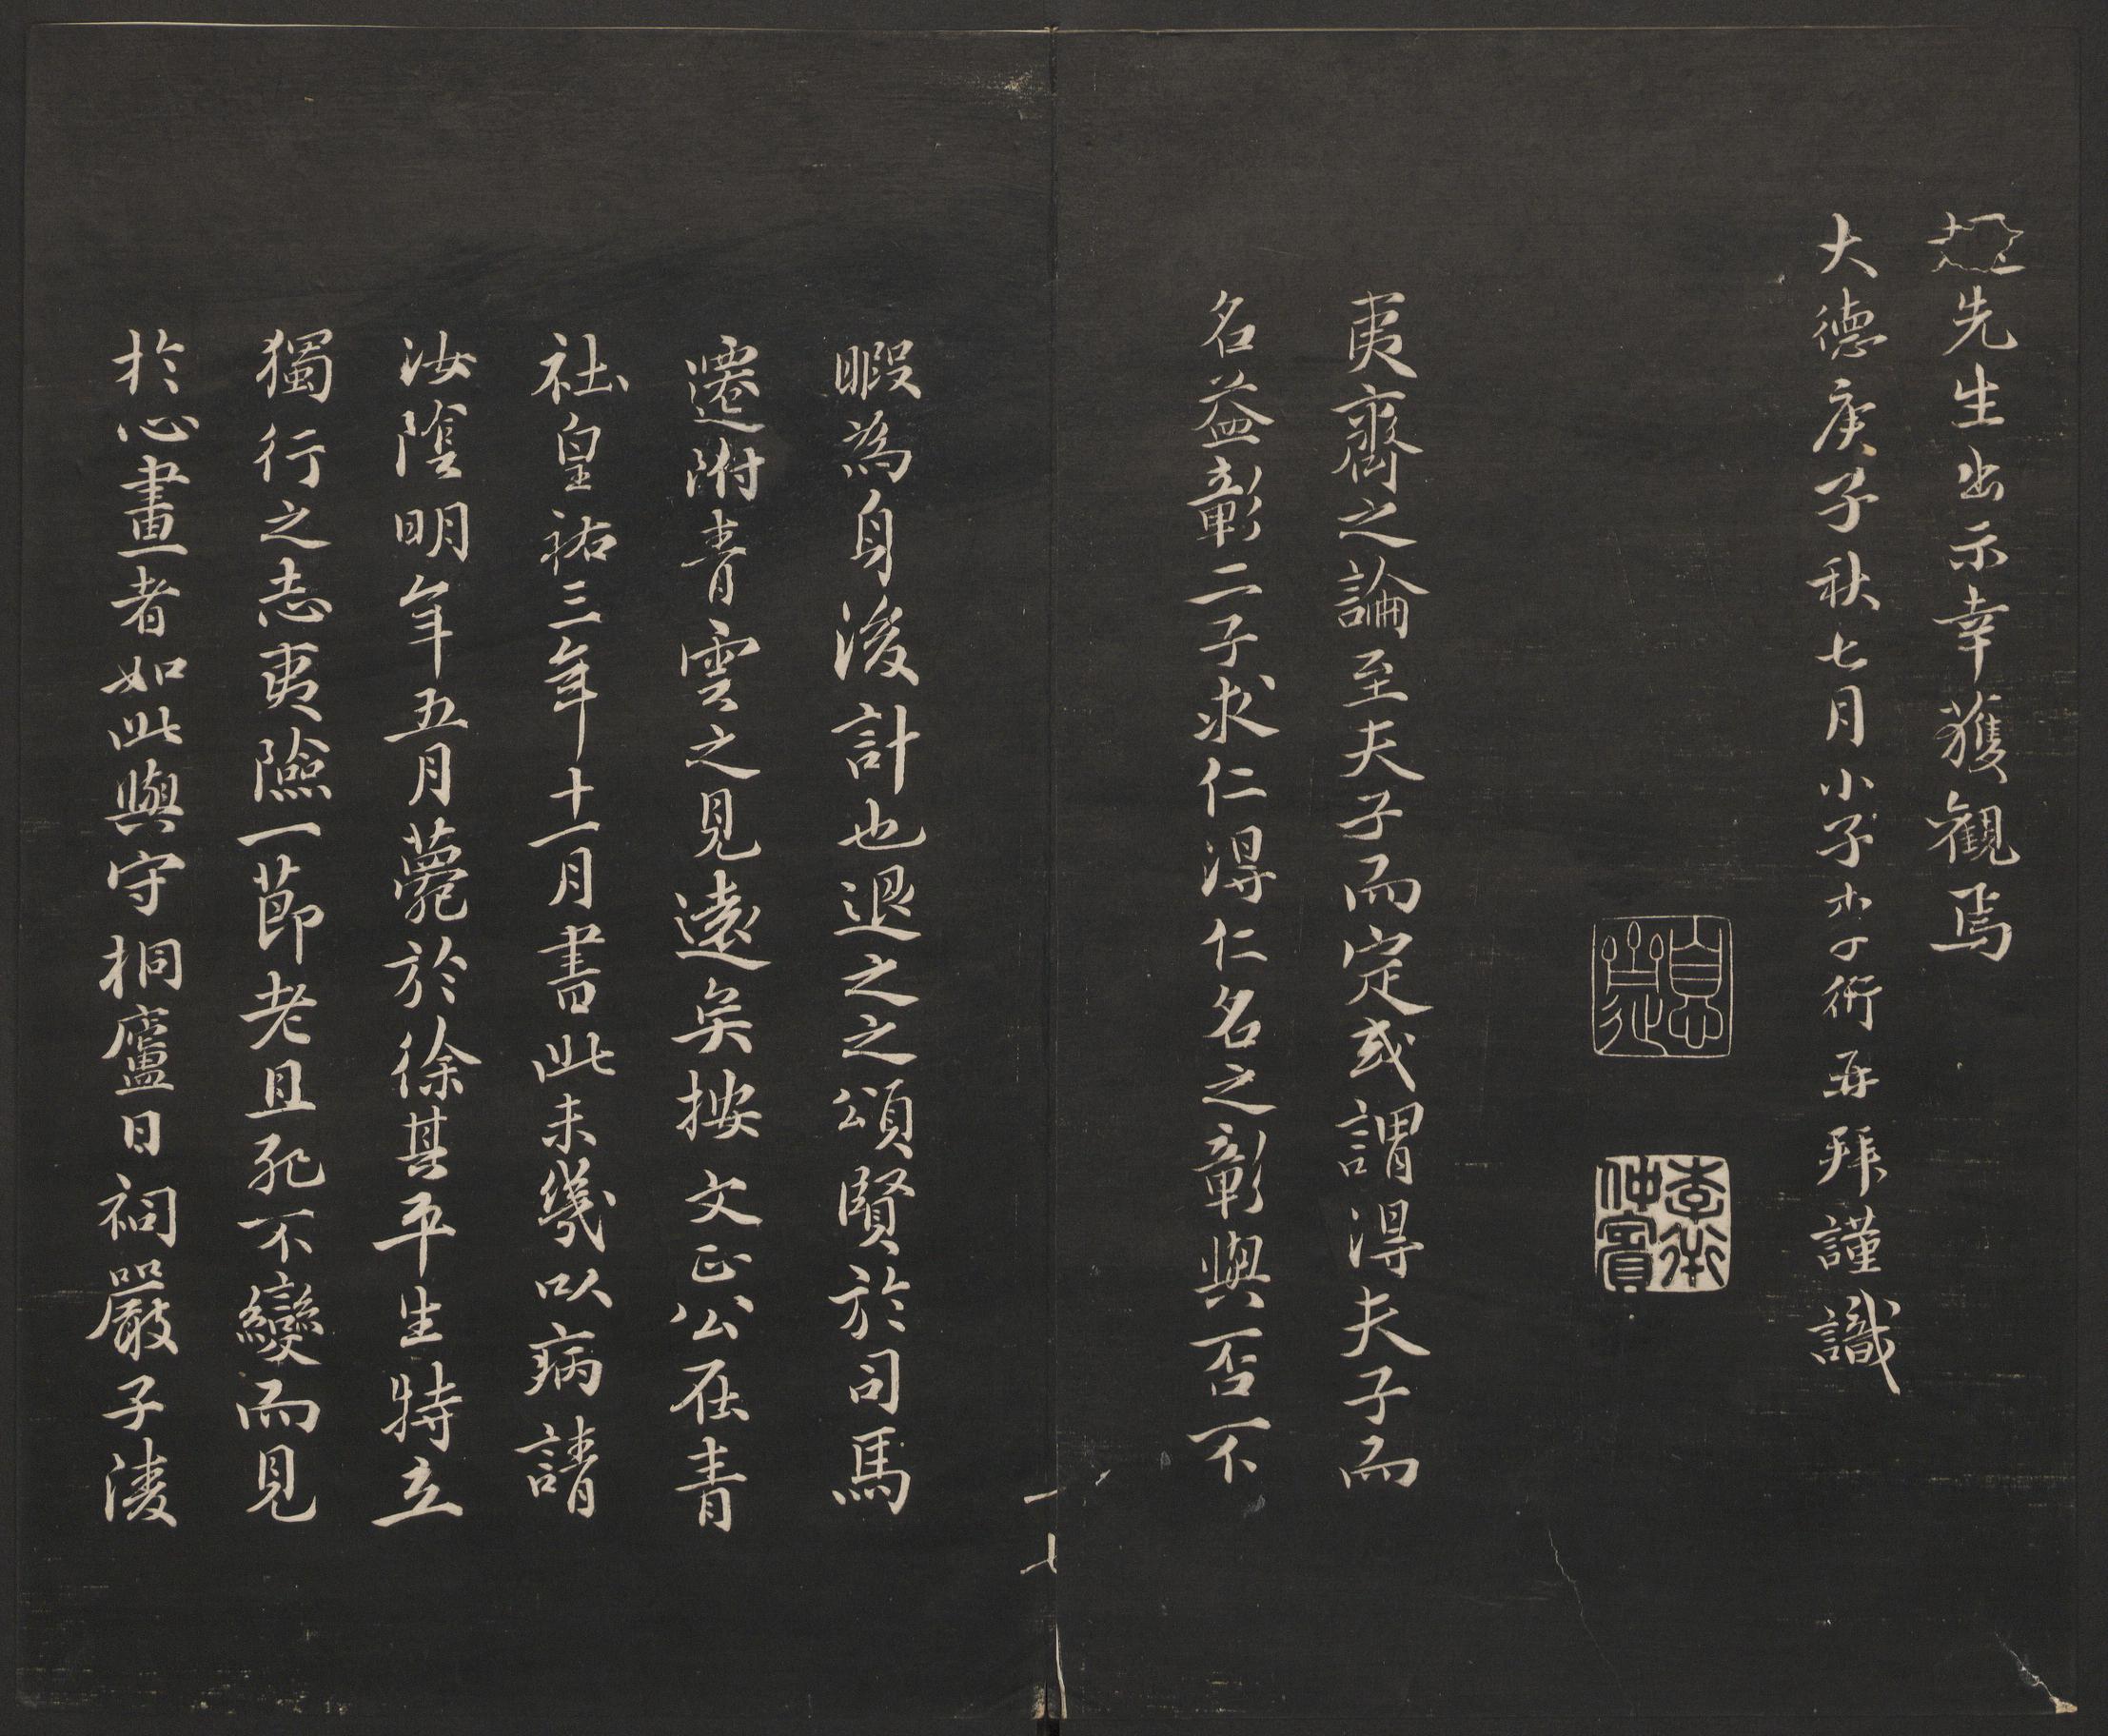 先生出示幸獲觀焉
大德庚子秋七月小子李衎再拜謹識
息齋
李衎仲賓
夷齊之論至夫子而定或謂得夫子而
名益彰二子求仁得仁名之彰與否不
一七
暇為身後計也退之之頌賢於司馬
遷附青雲之見遠矣按文正公在青
社皇祐三年十一月書此未幾以病請
汝陰明年五月薨於徐其平生特立
獨行之志夷險一節老且死不變而見
於心畫者如此與守桐廬日祠嚴子陵